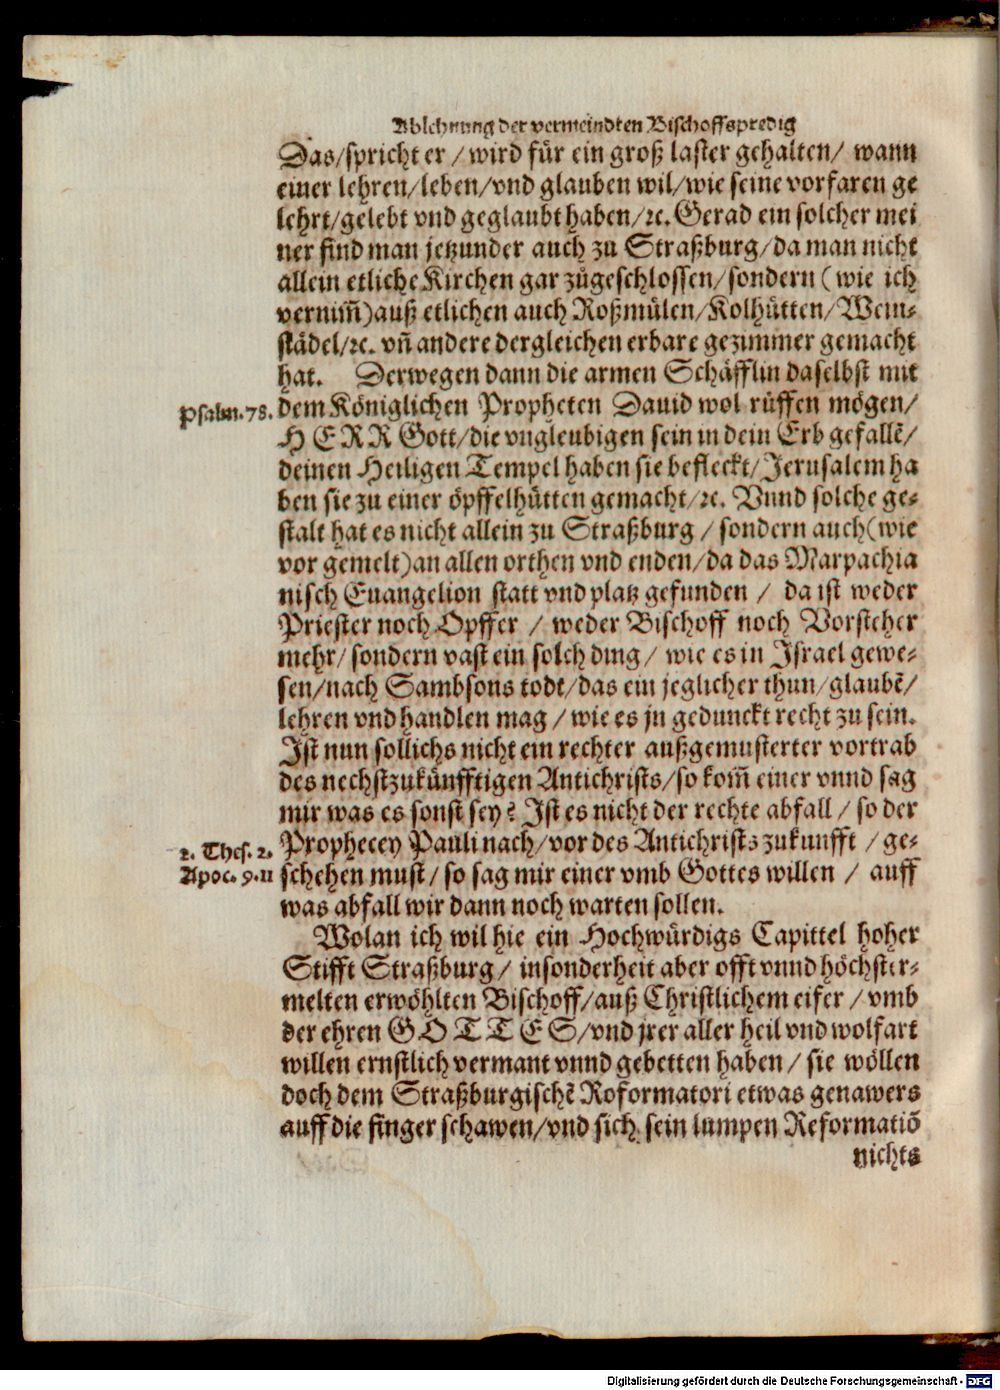 Ablehnung der vermeindten Bischoffspredig
Das/spricht er / wird für ein groß laster gehalten/ wann
einer lehren/leben/vnd glauben wil/wie seine vorfaren ge
lehrt/gelebt vnd geglaubt haben/ꝛc. Gerad ein solcher mei
ner find man jetzunder auch zu Straßburg/da man nicht
allein etliche Kirchen gar zůgeschlossen/sondern (wie ich
vernim̃)auß etlichen auch Roßmülen/Kolhütten/Wein-
städel/ꝛc. vñ andere dergleichen erbare gezimmer gemacht
hat. Derwegen dann die armen Schäfflin daselbst mit
Psalm. 78. dem Königlichen Propheten Dauid wol rüffen mögen/
HERR Gott/die vngleubigen sein in dein Erb gefallẽ/
deinen Heiligen Tempel haben sie befleckt/Jerusalem ha
ben sie zu einer öpffelhütten gemacht/ꝛc. Vnnd solche ge-
stalt hat es nicht allein zu Straßburg / sondern auch(wie
vor gemelt)an allen orthen vnd enden/da das Marpachia
nisch Euangelion statt vnd platz gefunden / da ist weder
Priester noch Opffer / weder Bischoff noch Vorsteher
mehr/ sondern vast ein solch ding / wie es in Israel gewe-
sen/nach Sambsons todt/das ein jeglicher thun/glaubẽ/
lehren vnd handlen mag / wie es jn gedunckt recht zu sein.
Ist nun sollichs nicht ein rechter außgemusterter vortrab
des nechstzukünfftigen Antichrists/so kom̃ einer vnnd sag
mir was es sonst sey? Ist es nicht der rechte abfall / so der
2. Thes. 2. Prophecey Pauli nach/vor des Antichrists zukunfft / ge-
Apoc. 9. 11 schehen must/ so sag mir einer vmb Gottes willen / auff
was abfall wir dann noch warten sollen.
Wolan ich wil hie ein Hochwürdigs Capittel hoher
Stifft Straßburg/ insonderheit aber offt vnnd höchster-
melten erwöhlten Bischoff/auß Christlichem eifer / vmb
der ehren GOTTES/vnd jrer aller heil vnd wolfart
willen ernstlich vermant vnnd gebetten haben / sie wöllen
doch dem Straßburgischẽ Roformatori etwas genawers
auff die finger schawen/vnd sich sein lumpen Reformatiõ
nichts
Digitalisierung gefördert durch die Deutsche Forschungsgemeinschaft - DFG